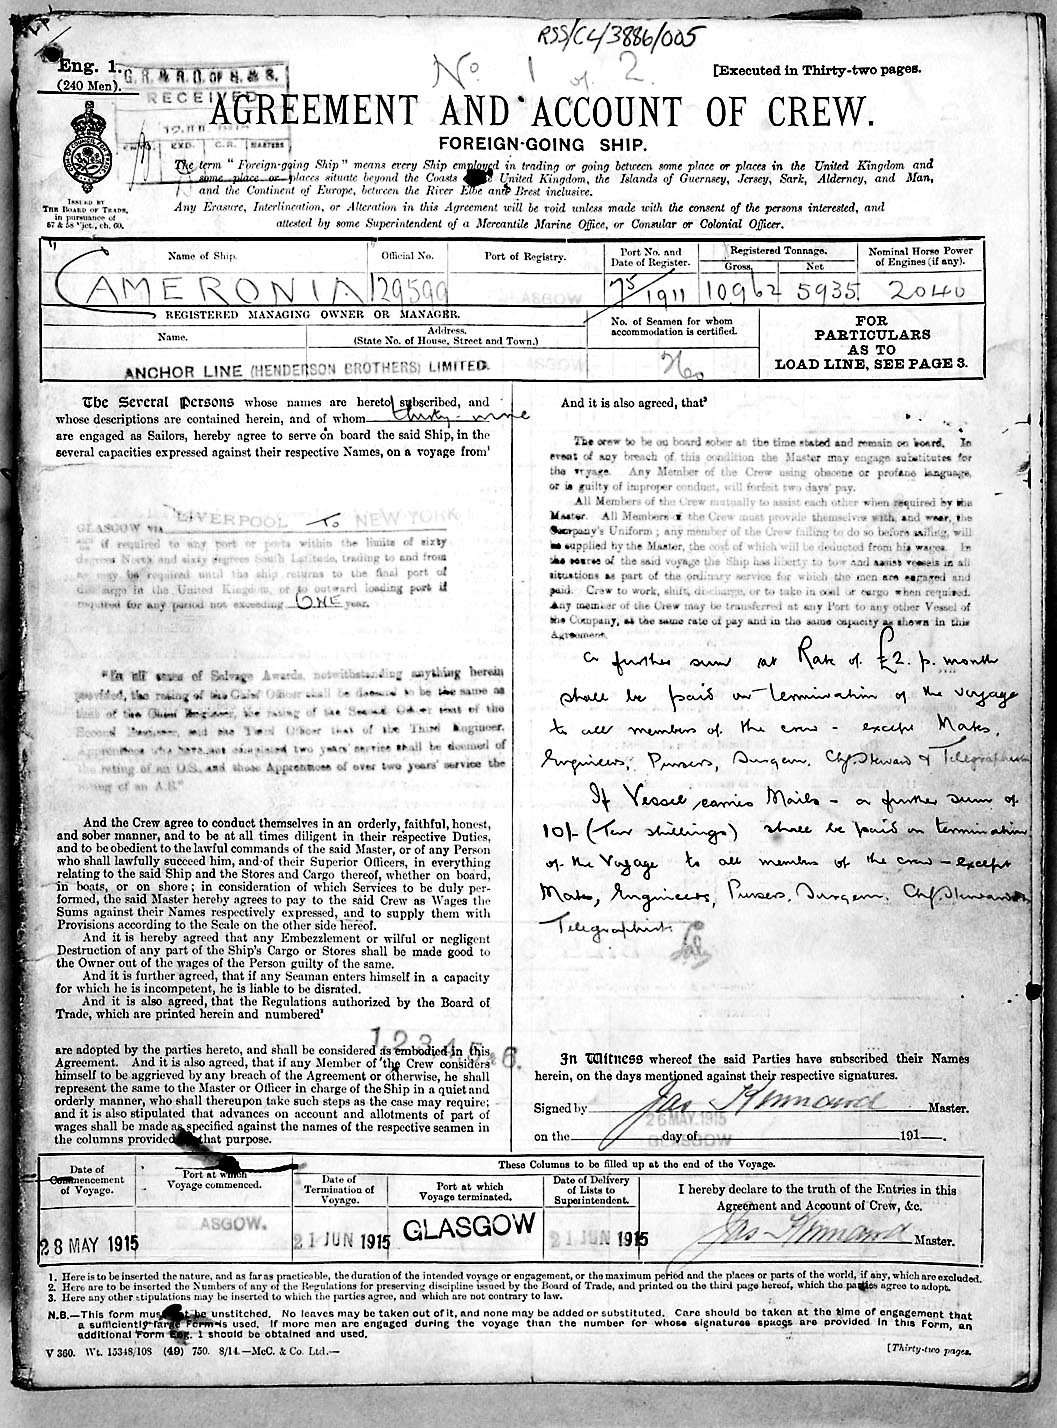 RSS/CL/3886/005
Eng. 1.
(240 Men).
No 1 of 2.
[Executed in Thirty-two pages.
G. R. & R. O. OF S. & S.
RECEIVED
EXD. C.R. MASTERS
AGREEMENT AND ACCOUNT OF CREW.
FOREIGN-GOING SHIP.
The term "Foreign-going Ship" means every Ship employed in trading or going between some place or places in the United Kingdom and
some place or places situate beyond the Coasts United Kingdom, the Islands of Guernsey, Jersey, Sark, Alderney, and Man,
and the Continent of Europe, between the River Elbe and Brest inclusive.
Any Erasure, Interlineation, or Alteration in this Agreement will be void unless made with the consent of the persons interested, and
attested by some Superintendent of a Mercantile Marine Office, or Consular or Colonial Officer.
ISSUED BY
THE BOARD OF TRADE,
in pursuance of
57 & 58 Vict., ch. 60.
Name of Ship. Official No. Port of Registry. Port No. and Date of Register. Registered Tonnage. Gross. Net Nominal Horse Power of Engines (if any).
CAMERONIA 129599 75/1911 10962 5935 2040
REGISTERED MANAGING OWNER OR MANAGER.
Name. Address. (State No. of House, Street and Town.)
No. of Seamen for whom accommodation is certified.
FOR
PARTICULARS
AS TO
LOAD LINE, SEE PAGE 3.
ANCHOR LINE (HENDERSON BROTHERS) LIMITED.
The Several Persons whose names are hereto subscribed, and
whose descriptions are contained herein, and of whom thirty-nine
are engaged as Sailors, hereby agree to serve on board the said Ship, in the
several capacities expressed against their respective Names, on a voyage from¹
GLASGOW VIA LIVERPOOL To NEW YORK
if required to any port or ports within the limits of sixty
degrees North and sixty degrees South Latitude, trading to and from
as may be required until the ship returns to the final port of
discharge in the United Kingdom, or to outward loading port if
required for any period not exceeding ONE year.
"In all cases of Salvage Awards, notwithstanding anything herein
provided, the rating of the Chief Officer shall be deemed to be the same as
that of the Chief Engineer, the rating of the Second Officer that of the
Second Engineer, and the Third Officer that of the Third Engineer.
Apprentices who have not completed two years' service shall be deemed of
the rating of an O.S. and those Apprentices of over two years' service the
rating of an A.B."
And the Crew agree to conduct themselves in an orderly, faithful, honest,
and sober manner, and to be at all times diligent in their respective Duties,
and to be obedient to the lawful commands of the said Master, or of any Person
who shall lawfully succeed him, and of their Superior Officers, in everything
relating to the said Ship and the Stores and Cargo thereof, whether on board,
in boats, or on shore; in consideration of which Services to be duly per-
formed, the said Master hereby agrees to pay to the said Crew as Wages the
Sums against their Names respectively expressed, and to supply them with
Provisions according to the Scale on the other side hereof.
And it is hereby agreed that any Embezzlement or wilful or negligent
Destruction of any part of the Ship's Cargo or Stores shall be made good to
the Owner out of the wages of the Person guilty of the same.
And it is further agreed, that if any Seaman enters himself in a capacity
for which he is incompetent, he is liable to be disrated.
And it is also agreed, that the Regulations authorized by the Board of
Trade, which are printed herein and numbered²
1.2.3.4.5 & 6.
are adopted by the parties hereto, and shall be considered as embodied in this
Agreement. And it is also agreed, that if any Member of the Crew considers
himself to be aggrieved by any breach of the Agreement or otherwise, he shall
represent the same to the Master or Officer in charge of the Ship in a quiet and
orderly manner, who shall thereupon take such steps as the case may require;
and it is also stipulated that advances on account and allotments of part of
wages shall be made as specified against the names of the respective seamen in
the columns provided that purpose.
And it is also agreed, that³
The crew to be on board sober at the time stated and remain on board. In
event of any breach of this condition the Master may engage substitutes for
the voyage. Any Member of the Crew using obscene or profane language,
or is guilty of improper conduct, will forfeit two days' pay.
All Members of the Crew mutually to assist each other when required by the
Master. All Members of the Crew must provide themselves with, and wear, the
Company's Uniform; any member of the Crew failing to do so before sailing, will
be supplied by the Master, the cost of which will be deducted from his wages. In
the course of the said voyage the Ship has liberty to tow and assist vessels in all
situations as part of the ordinary service for which the men are engaged and
paid. Crew to work, shift, discharge, or to take in coal or cargo when required.
Any member of the Crew may be transferred at any Port to any other Vessel of
the Company, at the same rate of pay and in the same capacity as shewn in this
Agreement.
A further sum at Rate of £2. p. month
shall be paid on termination of the voyage
to all members of the crew - except Mates,
Engineers, Pursers, Surgeon, Chf. Steward & Telegraphist
If Vessel carries Mails - a further sum of
10/- (Ten shillings) shall be paid on termination
of the Voyage to all members of the crew - except
Mates, Engineers, Pursers, Surgeon, Chf. Steward &
Telegraphist
In Witness whereof the said Parties have subscribed their Names
herein, on the days mentioned against their respective signatures.
Signed by Jas Kennaird Master.
26 MAY. 1915
GLASGOW
on the day of 191 .
These Columns to be filled up at the end of the Voyage.
Date of Commencement of Voyage. Port at which Voyage commenced. Date of Termination of Voyage. Port at which Voyage terminated. Date of Delivery of Lists to Superintendent.
I hereby declare to the truth of the Entries in this
Agreement and Account of Crew, &c.
28 MAY 1915 GLASGOW. 21 JUN 1915 GLASGOW 21 JUN 1915 Jas Kennaird Master.
1. Here is to be inserted the nature, and as far as practicable, the duration of the intended voyage or engagement, or the maximum period and the places or parts of the world, if any, which are excluded.
2. Here are to be inserted the Numbers of any of the Regulations for preserving discipline issued by the Board of Trade, and printed on the third page hereof, which the parties agree to adopt.
3. Here any other stipulations may be inserted to which the parties agree, and which are not contrary to law.
N.B.—This form must not be unstitched. No leaves may be taken out of it, and none may be added or substituted. Care should be taken at the time of engagement that
a sufficiently large Form is used. If more men are engaged during the voyage than the number for whose signatures spaces are provided in this Form, an
additional Form Eng. 1 should be obtained and used.
V 360. Wt. 15348/108 (49) 750. 8/14.—McC. & Co. Ltd.—
[Thirty-two pages.